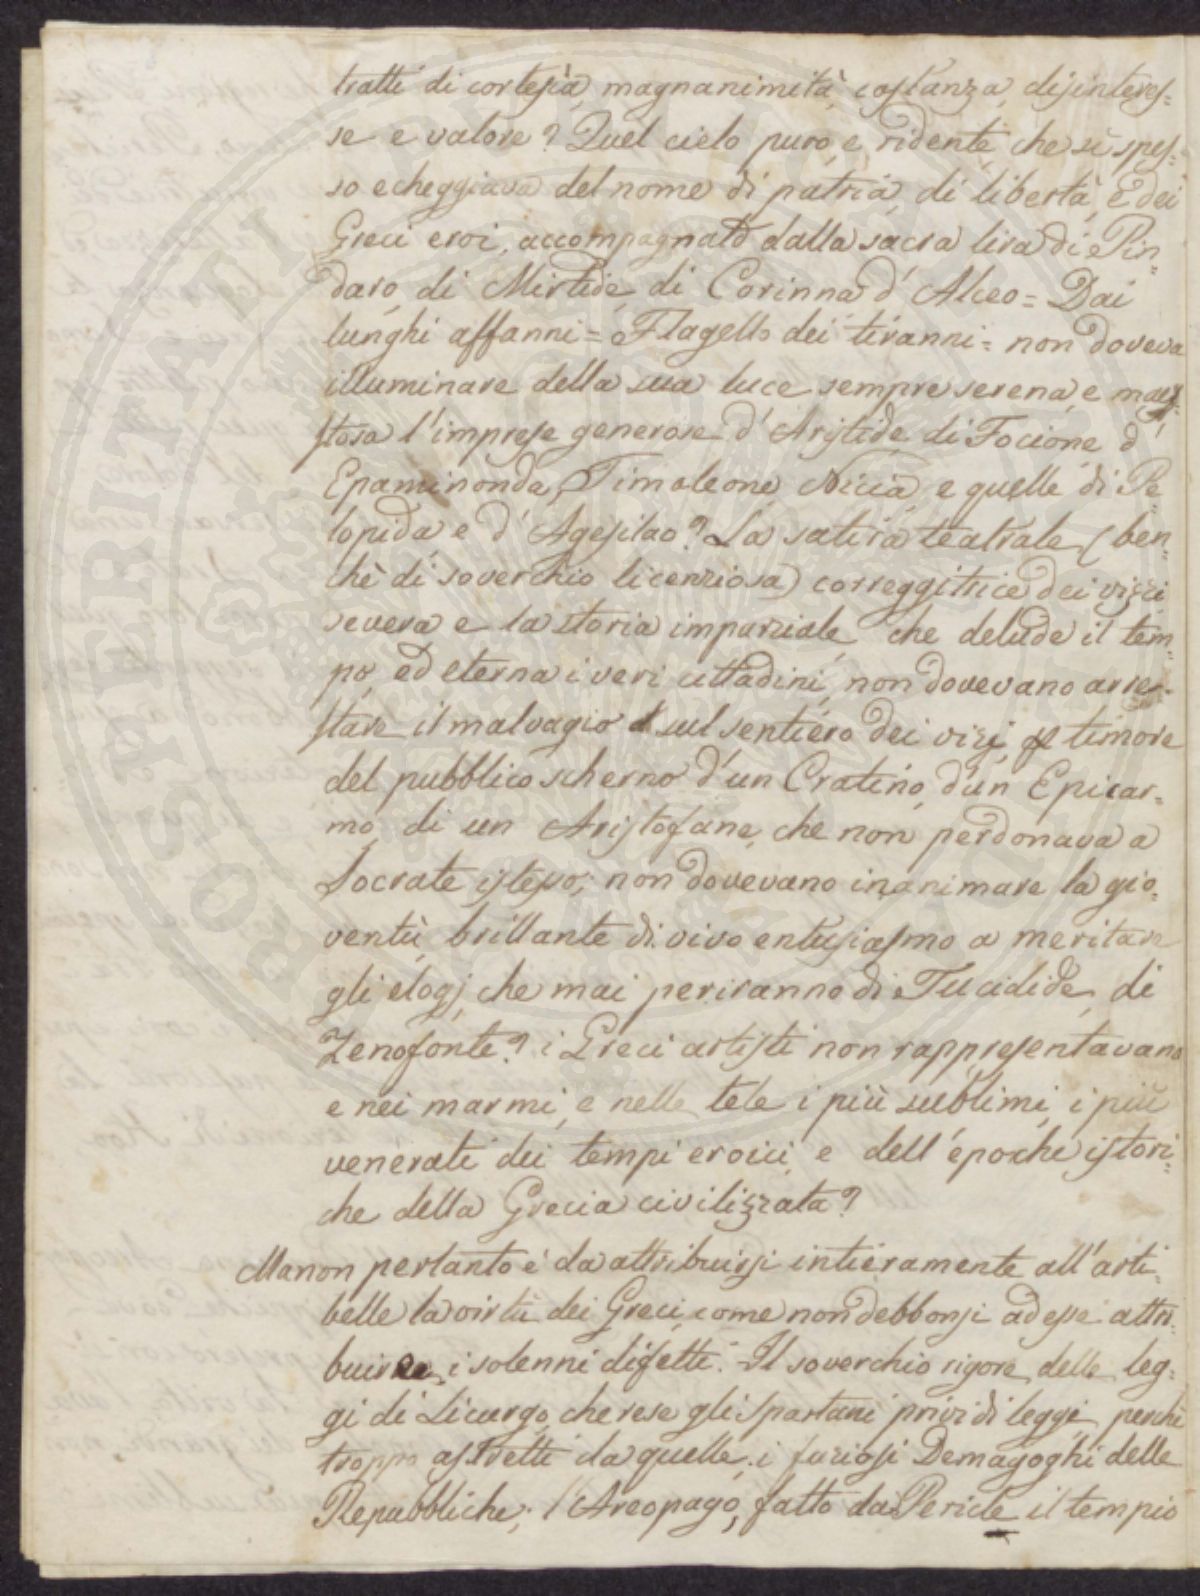 tratti di cortesia, magnanimità, costanza, disinteres-
se e valore? Quel cielo puro, e ridente, che sì spes-
so echeggiava del nome di patria, di libertà, e dei
Greci eroi, accompagnato dalla sacra lira di Pin-
daro, di Mirtide, di Corinna d'Alceo = Dai
lunghi affanni = Flagello dei tiranni = non doveva
illuminare della sua luce sempre serena, e mae-
stosa l'imprese generose d'Aristide, di Focione d'
Epaminonda, Timoleone, Nicia, e quelle di Pe-
lopida e d'Agesilao? La satira teatrale (ben-
chè di soverchio licenziosa) correggitrice dei vizzi
severa e la storia imparziale, che delude il tem-
po, ed eterna i veri cittadini, non dovevano arre-
stare il malvagio sul sentiero dei vizj, p timore
del pubblico scherno d'un Cratino, d'un Epicar-
mo, di un Aristofane, che non perdonava a
Socrate istesso; non dovevano inanimare la gio-
ventù, brillante di vivo entusiasmo a meritare
gli elogj, che mai periranno di Tucidide, di
Zenofonte? i Greci artisti non rappresentavano
e nei marmi, e nelle tele i più sublimi, i più
venerati dei tempi eroici, e dell'epoche istori-
che della Grecia civilizzata?
Ma non pertanto è da attribuirsi intieramente all'arti
belle la virtù dei Greci, come non debbonsi ad esse attri-
buire i solenni difetti. Il soverchio rigore delle leg-
gi di Licurgo, che rese gli Spartani privi di leggi, perchè
troppo astretti da quelle; i furiosi Demagoghi delle
Repubbliche; l'Areopago, fatto da Pericle il tempio
ROSPERITATI PUBLICAE